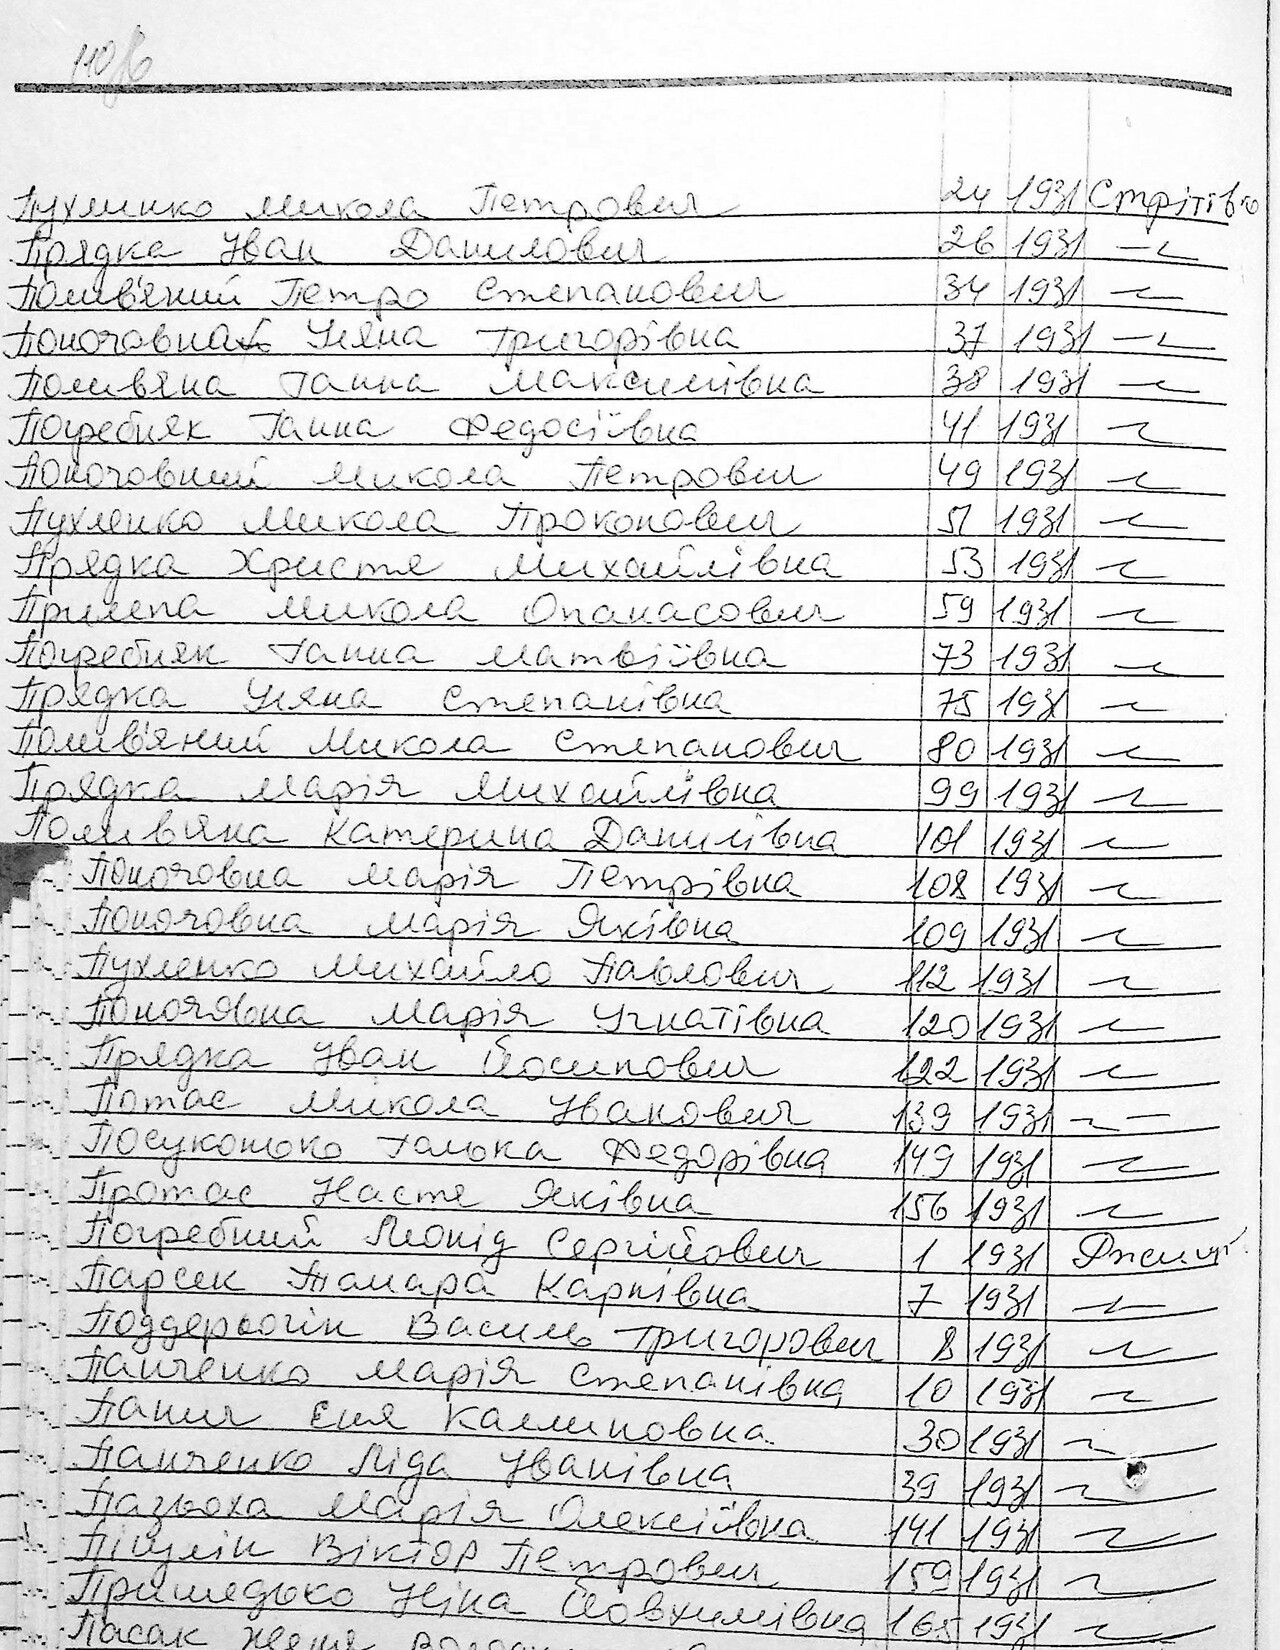 110
Пухлинко Микола Петрович 24 1931 Стрітівка
Прядка Іван Данилович 26 1931 —״—
Полив'яний Петро Степанович 34 1931 —״—
Поночовна Уляна Григорівна 37 1931 —״—
Полив'яна Ганна Максимівна 38 1931 —״—
Погребняк Ганна Федосіївна 41 1931 —״—
Поночовний Микола Петрович 49 1931 —״—
Пухленко Микола Прокопович 51 1931 —״—
Прядка Христя Михайлівна 53 1931 —״—
Прилепа Микола Опанасович 59 1931 —״—
Погребняк Ганна Матвіївна 73 1931 —״—
Прядка Уляна Степанівна 75 1931 —״—
Полив'яний Микола Степанович 80 1931 —״—
Прядка Марія Михайлівна 99 1931 —״—
Полив'яна Катерина Данилівна 101 1931 —״—
Поночовна Марія Петрівна 108 1931 —״—
Поночовна Марія Яківна 109 1931 —״—
Пухленко Михайло Павлович 112 1931 —״—
Поночовна Марія Ігнатівна 120 1931 —״—
Прядка Іван Йосипович 122 1931 —״—
Потас Микола Іванович 139 1931 —״—
Посуконько Галька Федорівна 149 1931 —״—
Протас Настя Яківна 156 1931 —״—
Погребний Леонід Сергійович 1 1931
Парсек Тамара Карпівна 7 1931 —״—
Поддерьогін Василь Григорович 8 1931 —״—
Панченко Марія Степанівна 10 1931 —״—
Панич Єня Калиновна 30 1931 —״—
Панченко Ліда Іванівна 39 1931 —״—
Пазьоха Марія Олексіївна 141 1931 —״—
Піщулін Віктор Петрович 159 1931 —״—
Пришедько Ніна Йовхимівна 165 1931 —״—
Пасак Женя